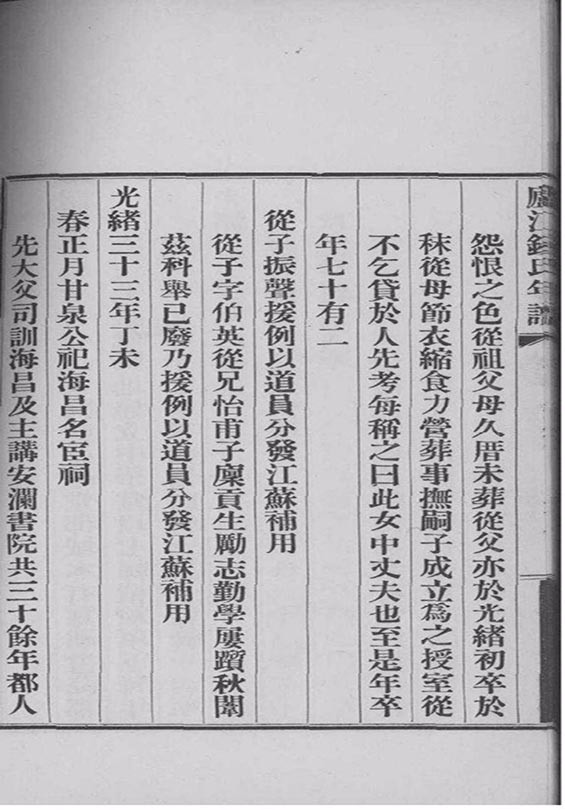 廬江錢氏年譜
怨恨之色從祖父母久厝未葬從父亦於光緒初卒於
秣從母節衣縮食力營葬事撫嗣子成立爲之授室從
不乞貸於人先考每稱之曰此女中丈夫也至是年卒
年七十有二
從子振聲援例以道員分發江蘇補用
從子字伯英從兄怡甫子廩貢生勵志勤學屢躓秋闈
茲科舉已廢乃援例以道員分發江蘇補用
光緒三十三年丁未
春正月甘泉公祀海昌名宦祠
先大父司訓海昌及主講安瀾書院共三十餘年都人